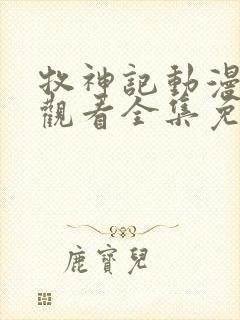 牧神記動漫
觀看全集免
鹿寶兒